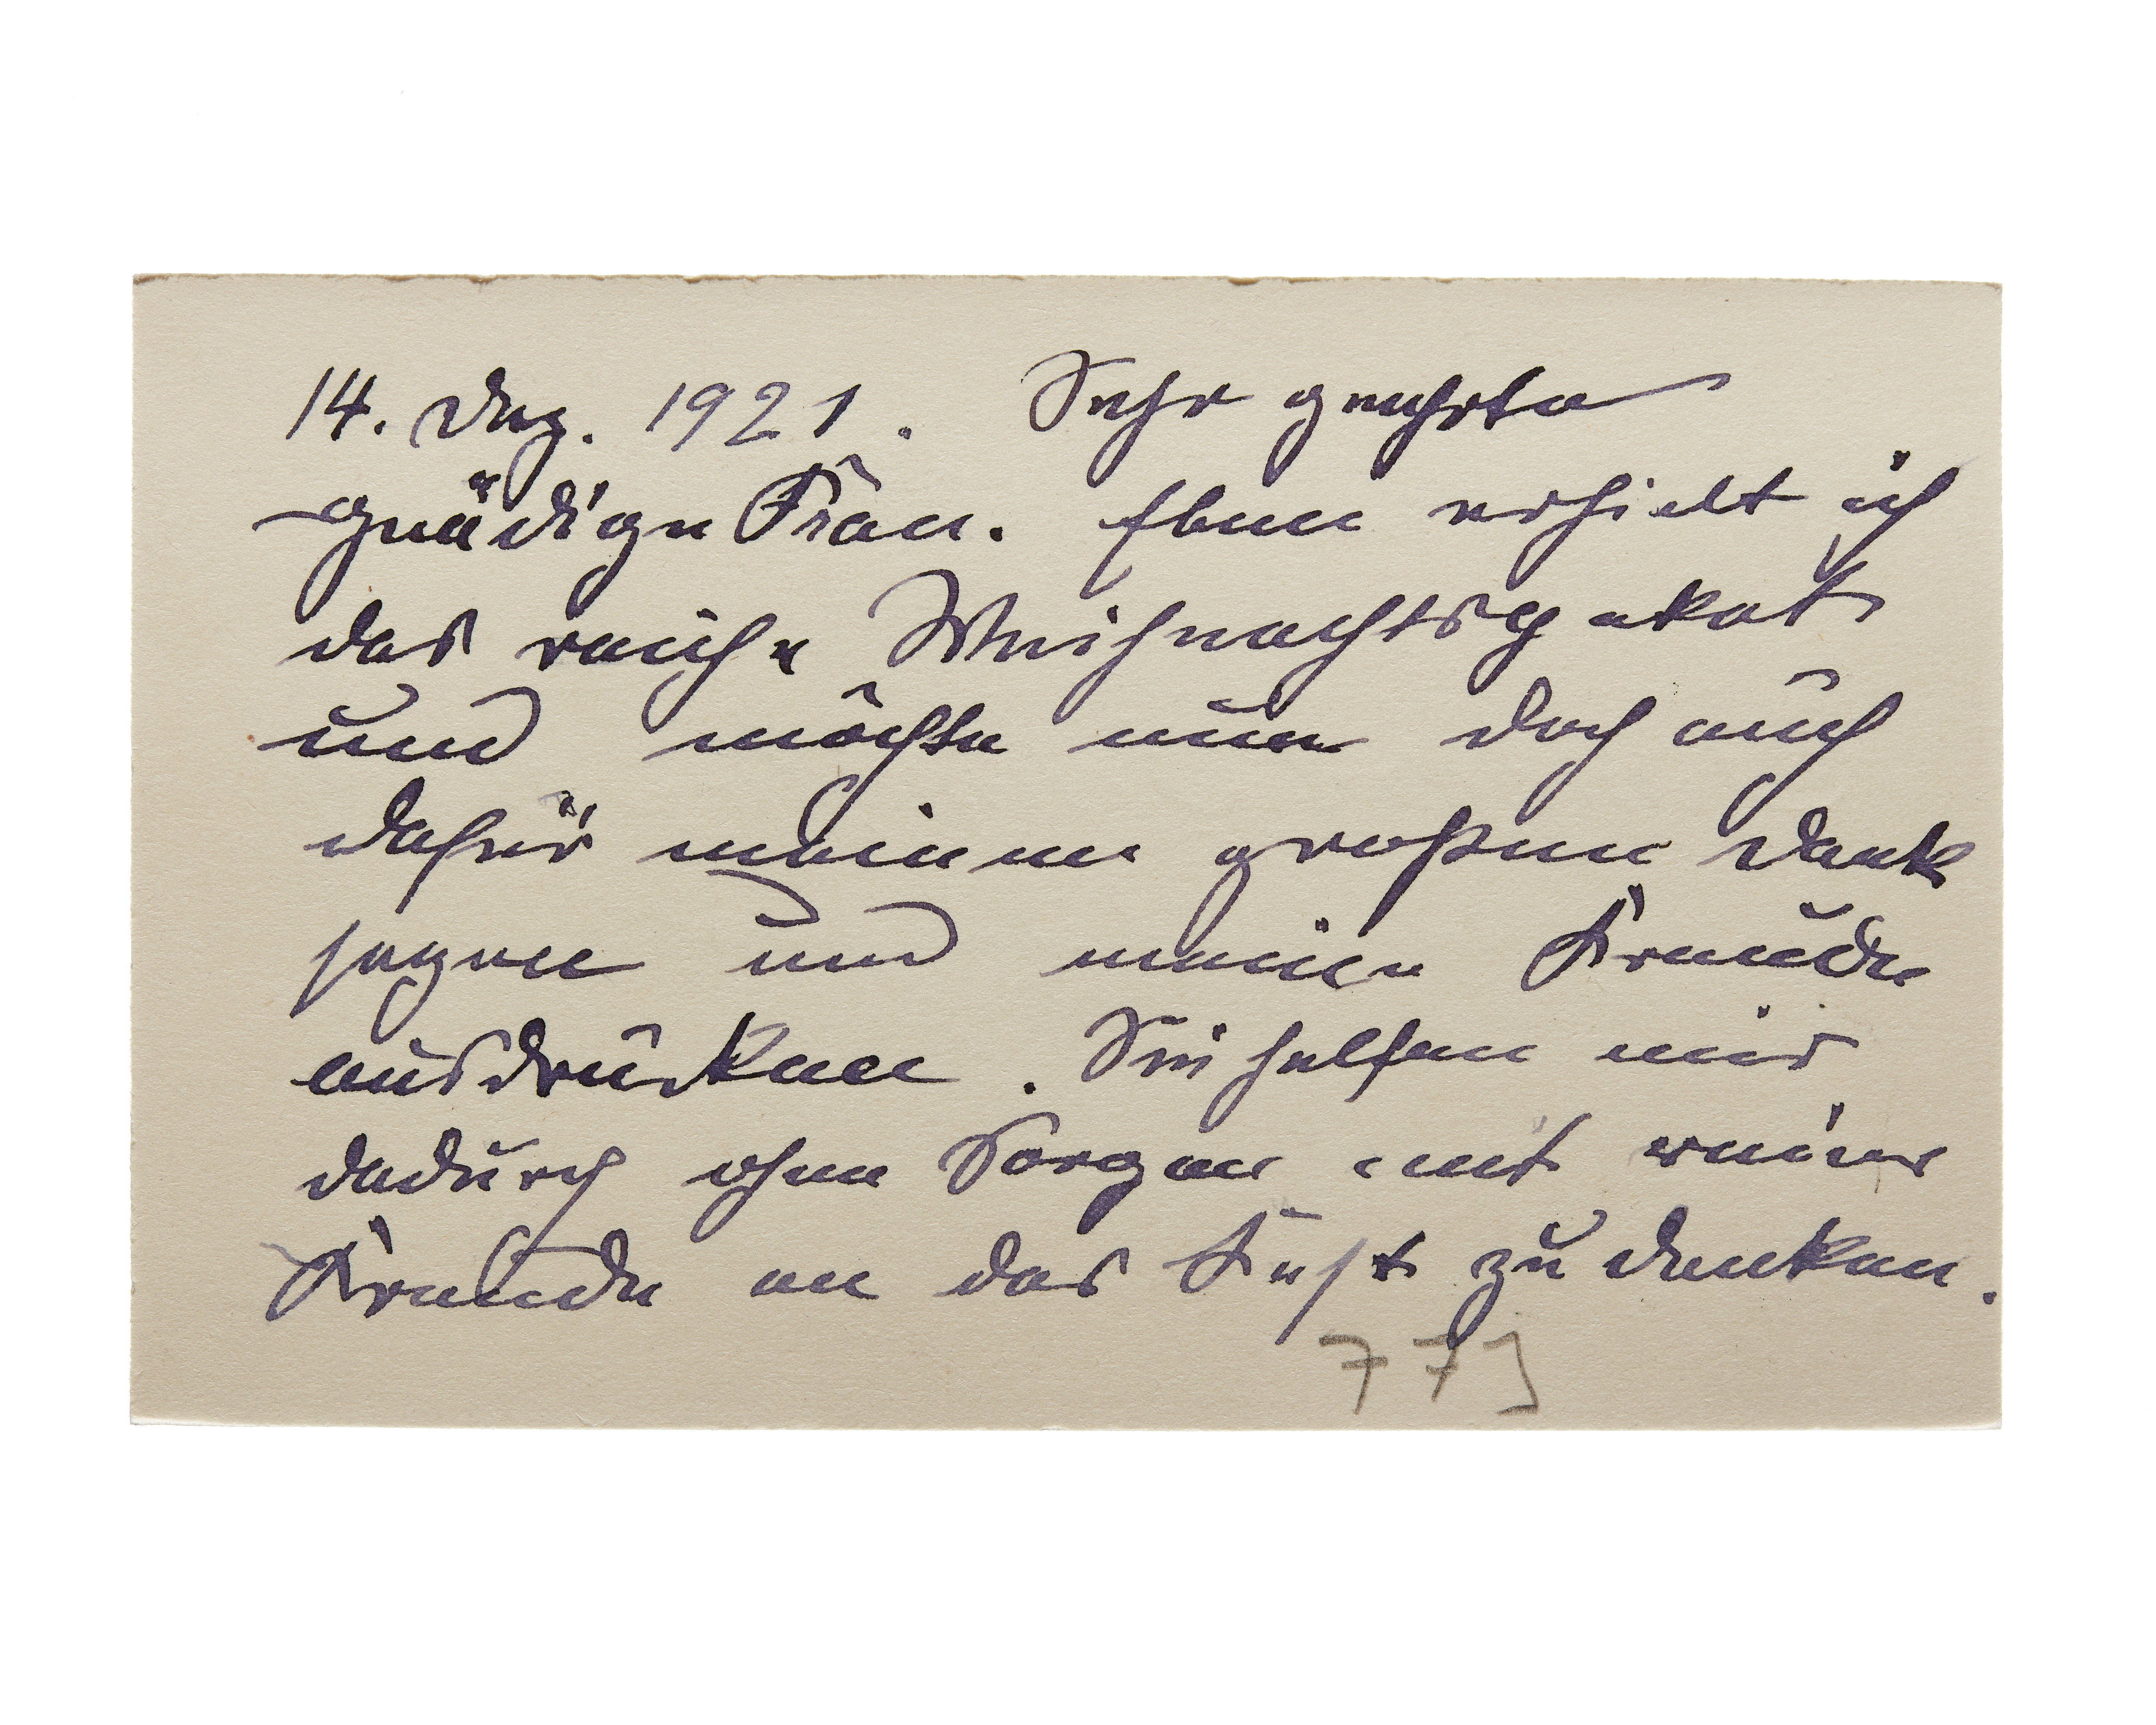 14. Dez. 1921. Sehr geehrte
gnädige Frau. Eben erhielt ich
das reiche Weihnachtspaket
und möchte nun doch auch
dafür meinen großen Dank
sagen und meine Freude
ausdrücken. Sie helfen mir
dadurch ohne Sorgen mit reiner
Freude an das Fest zu denken.